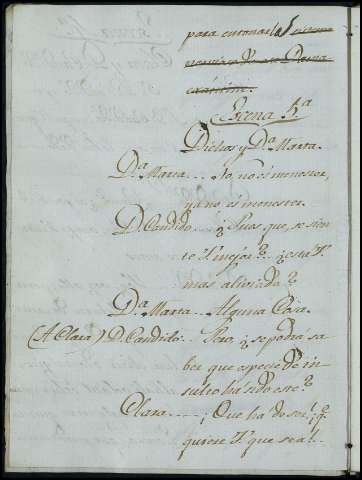 para entonarla
Escena 5ª
Dichos y Dª Marta.
Dª Marta.... Ya, no es menester,
ya no es menester.
D. Candido... ¿Pues que, se sien-
te V. mejor? ¿está V.
mas aliviada?
Dª Marta.. Alguna Cosa.
(A Clara) D. Candido.. Pero, ¿se podrá sa-
ber que especie de in-
sulto ha sido este?
Clara.... ¡Que ha de ser! ¿q.
quiere V. que sea l-